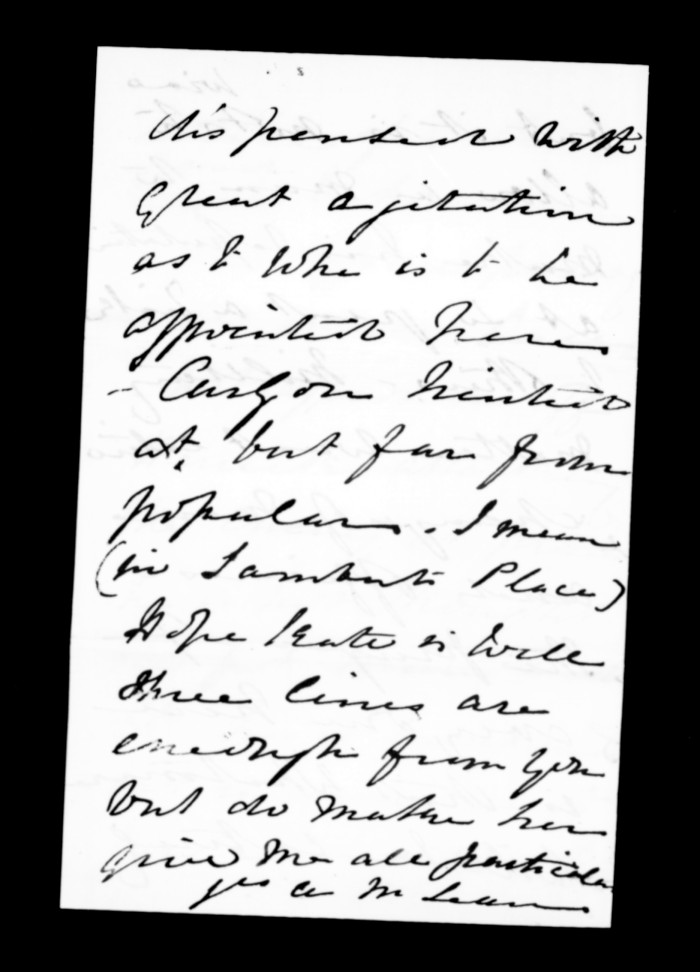 dispensed with
great agitation
as to who is to be
appointed here
- Curzon hinted
at, but far from
popular. I mean
(in Lambert's Place)
Hope Kate is well
three lines are
enough from you
but do make her
give me all particulars
yrs a McLean